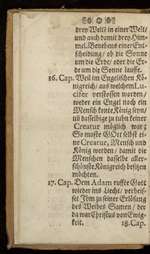 drey Welt? in einer Welt/
und auch damit drey Him-
mel. Benebenst einer Ent-
scheidung / ob die Sonne
um die Erde/ oder die Er-
de um die Sonne lauffe.
16. Cap. Weil im Engelischen Kö-
nigreich/ aus welchem Lu-
cifer verstossen worden/
weder ein Engel noch ein
Mensch konte König seyn/
und dasselbige zu thun keiner
Creatur möglich war;
So muste GOtt selbst ei-
ne Creatur, Mensch und
König werden/ damit die
Menschen dasselbe aller-
schönste Königreich besitzen
möchten.
17. Cap. Dem Adam ruffte Gott
wieder ins Liecht/ verhieß-
set Ihm zu seiner Erlösung
des Weibes Samen/ der
da war Christus von Ewig-
keit.
18. Cap.